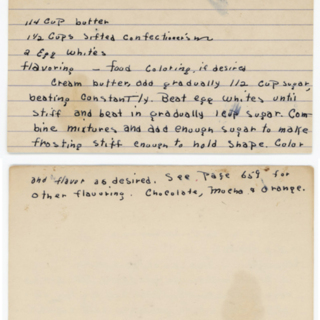 1/4 cup butter
1 1/2 Cups sifted Confectioners
2 Egg whites
flavoring – food coloring, if desired
Cream butter, add gradually 1/2 cup sugar,
beating constantly. Beat egg whites until
stiff and beat in gradually 1 cup sugar. Com
bine mixtures and add enough sugar to make
frosting stiff enough to hold shape. Color
and flavor as desired. See Page for
other flavoring. Chocolate, Mocha & orange.